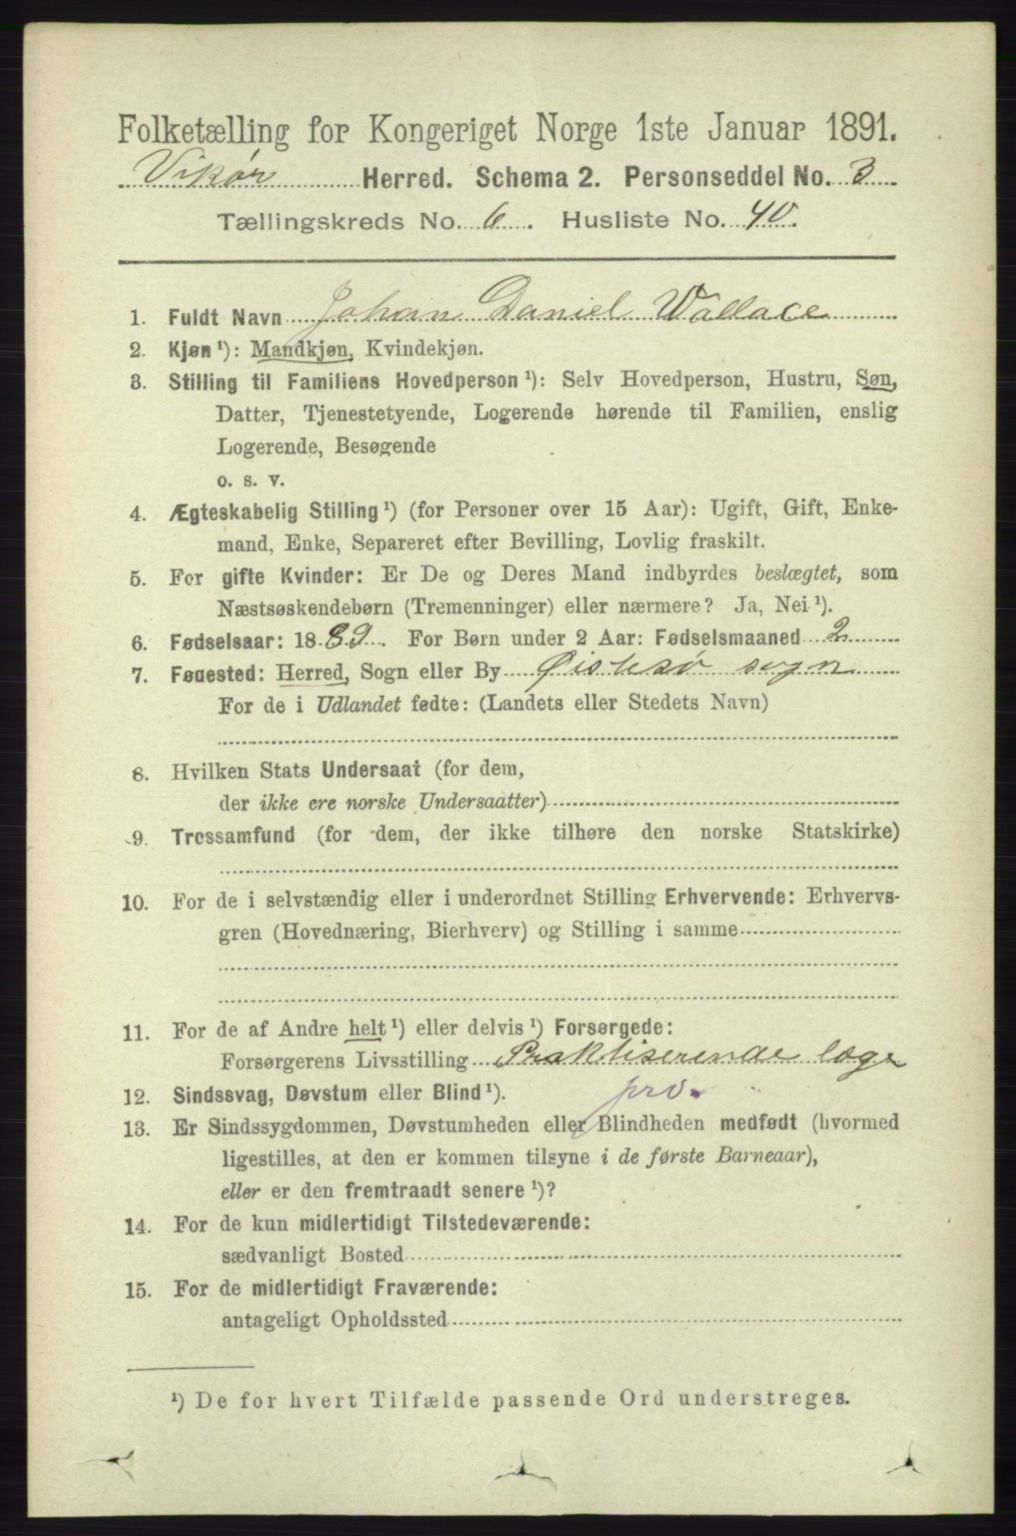 Folketælling for Kongeriget Norge 1ste Januar 1891.
Vikør Herred. Schema 2. Personseddel No. 3
Tællingskreds No. 6. Husliste No. 40.
1. Fuldt Navn Johan Daniel Wallace
2. Kjøn ¹): Mandkjøn, Kvindekjøn.
3. Stilling til Familiens Hovedperson ¹): Selv Hovedperson, Hustru, Søn,
Datter, Tjenestetyende, Logerende hørende til Familien, enslig
Logerende, Besøgende
o. s. v.
4. Ægteskabelig Stilling ¹) (for Personer over 15 Aar): Ugift, Gift, Enke-
mand, Enke, Separeret efter Bevilling, Lovlig fraskilt.
5. For gifte Kvinder: Er De og Deres Mand indbyrdes beslægtet, som
Næstsøskendebørn (Tremenninger) eller nærmere? Ja, Nei ¹).
6. Fødselsaar: 1889. For Børn under 2 Aar: Fødselsmaaned 2
7. Føuested: Herred, Sogn eller By Østensø sogn
For de i Udlandet fødte: (Landets eller Stedets Navn)
8. Hvilken Stats Undersaat (for dem,
der ikke ere norske Undersaatter)
9. Trossamfund (for dem, der ikke tilhøre den norske Statskirke)
10. For de i selvstændig eller i underordnet Stilling Erhvervende: Erhvervs-
gren (Hovednæring, Bierhverv) og Stilling i samme
11. For de af Andre helt ¹) eller delvis ¹) Forsørgede:
Forsørgerens Livsstilling Praktiserende læge
12. Sindssvag, Døvstum eller Blind ¹). priv.
13. Er Sindssygdommen, Døvstumheden eller Blindheden medfødt (hvormed
ligestilles, at den er kommen tilsyne i de første Barneaar),
eller er den fremtraadt senere ¹)?
14. For de kun midlertidigt Tilstedeværende:
sædvanligt Bosted
15. For de midlertidigt Fraværende:
antageligt Opholdssted
¹) De for hvert Tilfælde passende Ord understreges.